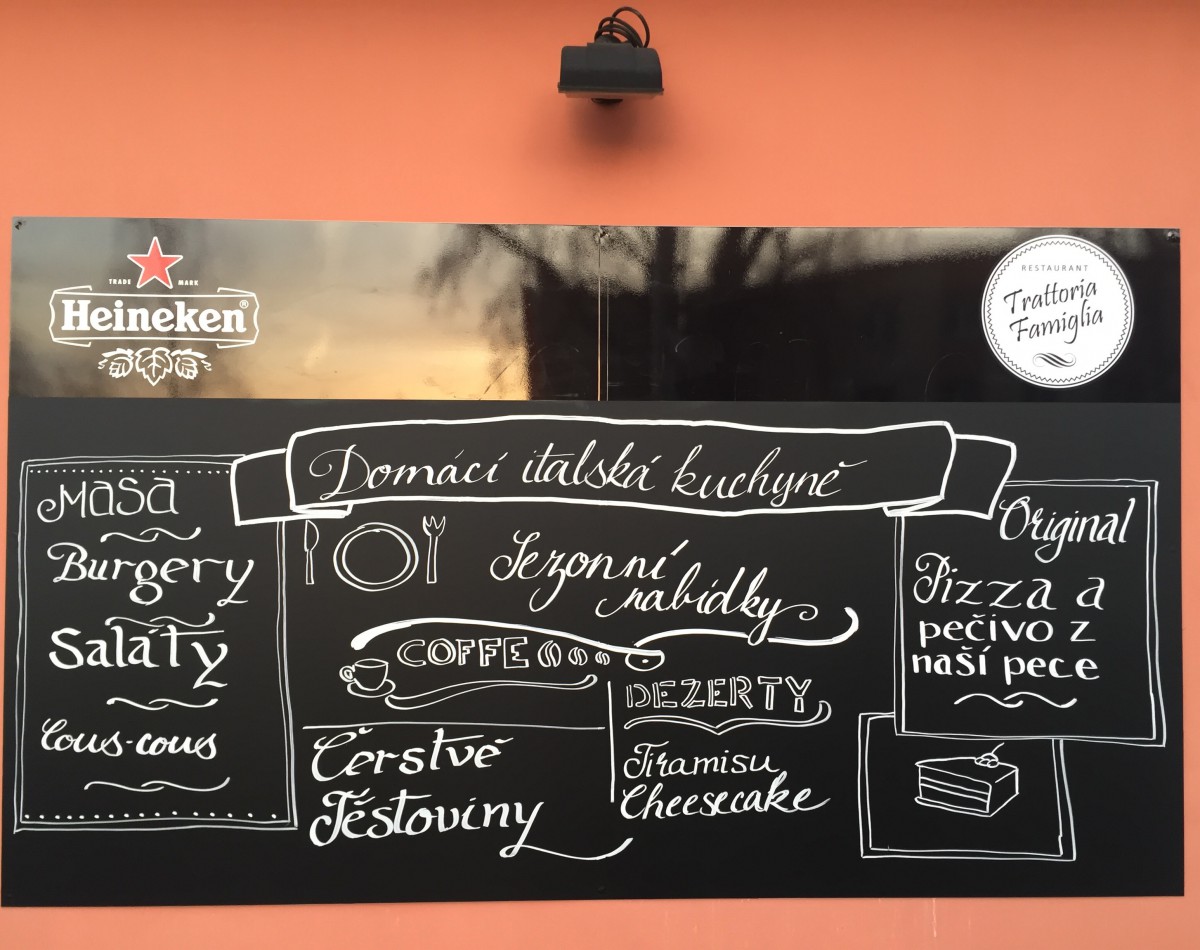 TRADE MARK
Heineken®
RESTAURANT
Trattoria
Famiglia
Domácí italská kuchyně
Masa
Burgery
Saláty
Cous-cous
Sezonní
nabídky
COFFE
Čerstvě
Těstoviny
DEZERTY
Tiramisu
Cheesecake
Original
Pizza a
pečivo z
naší pece